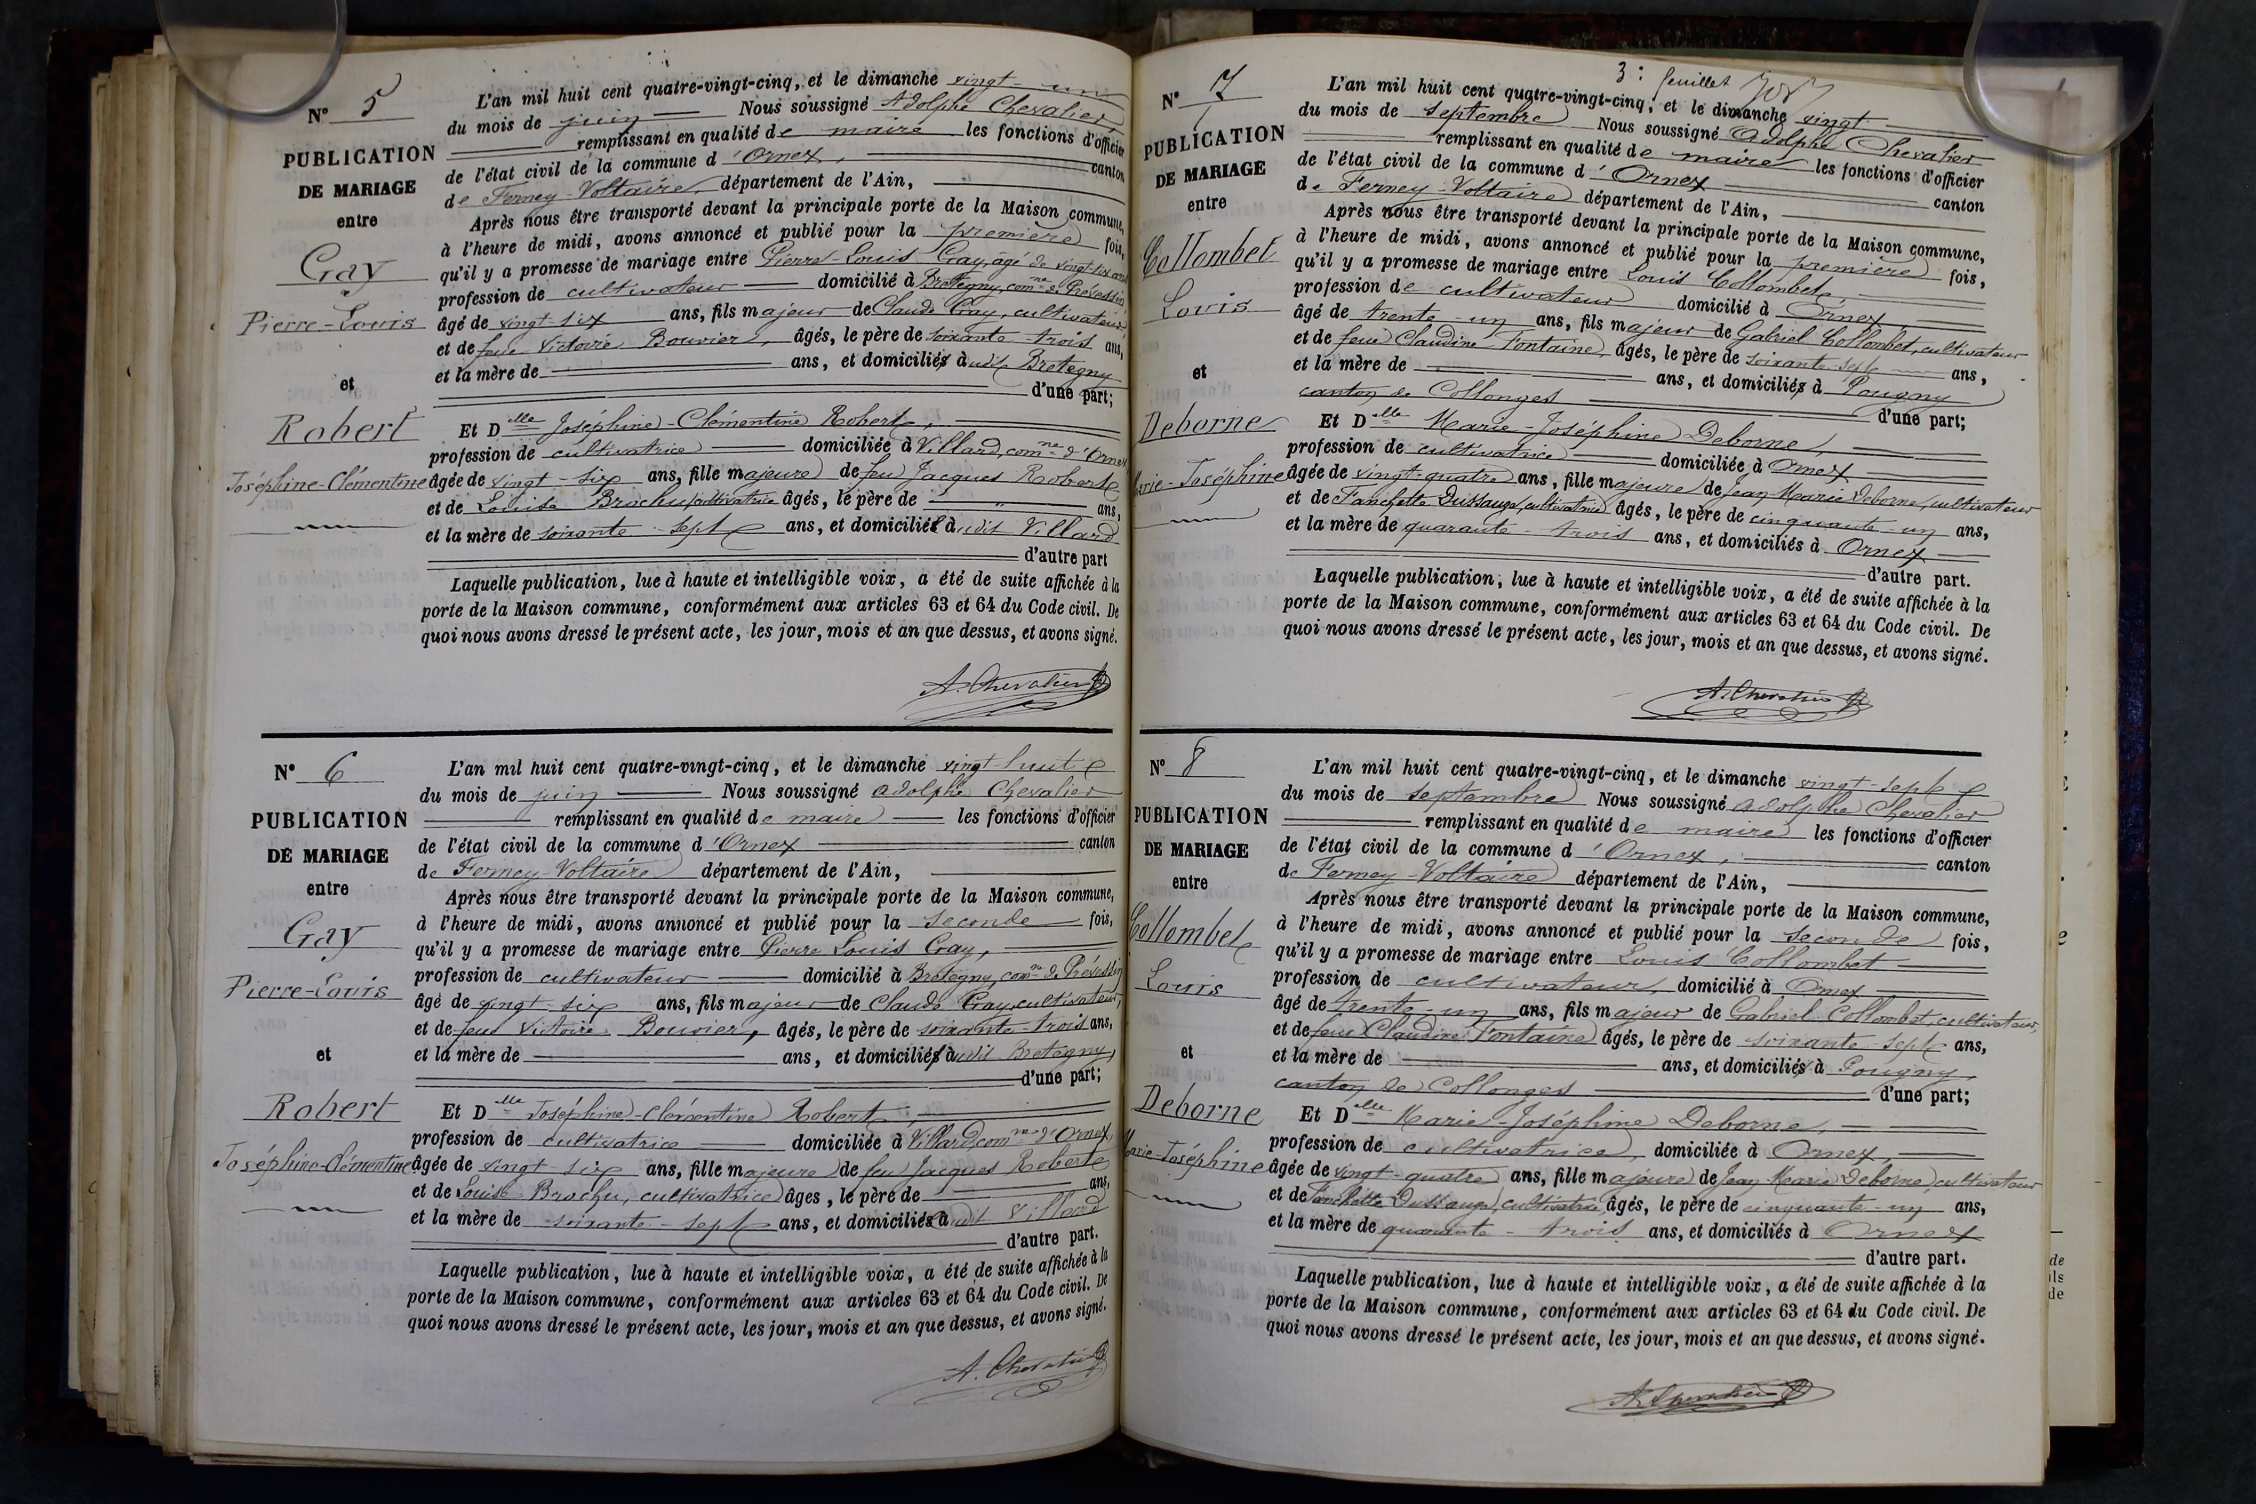 N° 5
PUBLICATION
DE MARIAGE
entre
Gay
Pierre-Louis
et
Robert
Joséphine-Clémentine
L'an mil huit cent quatre-vingt-cinq, et le dimanche vingt-un
du mois de juin Nous soussigné Adolphe Chevalier
remplissant en qualité de maire les fonctions d'officier
de l'état civil de la commune d'Ornex, canton
de Ferney-Voltaire département de l'Ain,
Après nous être transporté devant la principale porte de la Maison commune,
à l'heure de midi, avons annoncé et publié pour la première fois,
qu'il y a promesse de mariage entre Pierre-Louis Gay, âgé de vingt-six ans
profession de cultivateur domicilié à Bretegny, comne de Prévessin
âgé de vingt-six ans, fils majeur de Claude Gay, cultivateur
et de feue Victoire Bouvier, âgés, le père de soixante-trois ans,
et la mère de ans, et domiciliés audit Bretegny
d'une part;
Et Dlle Joséphine-Clémentine Robert,
profession de cultivatrice domiciliée à Villard, comne d'Ornex
âgée de vingt-six ans, fille majeure de feu Jacques Robert
et de Louise Brochu, cultivatrice âgés, le père de ans,
et la mère de soixante-sept ans, et domiciliés audit Villard
d'autre part
Laquelle publication, lue à haute et intelligible voix, a été de suite affichée à la
porte de la Maison commune, conformément aux articles 63 et 64 du Code civil. De
quoi nous avons dressé le présent acte, les jour, mois et an que dessus, et avons signé.
A. Chevalier
N° 6
PUBLICATION
DE MARIAGE
entre
Gay
Pierre-Louis
et
Robert
Joséphine-Clémentine
L'an mil huit cent quatre-vingt-cinq, et le dimanche vingt-huit
du mois de juin Nous soussigné Adolphe Chevalier
remplissant en qualité de maire les fonctions d'officier
de l'état civil de la commune d'Ornex canton
de Ferney-Voltaire département de l'Ain,
Après nous être transporté devant la principale porte de la Maison commune,
à l'heure de midi, avons annoncé et publié pour la seconde fois,
qu'il y a promesse de mariage entre Pierre Louis Gay,
profession de cultivateur domicilié à Bretegny, comne de Prévessin
âgé de vingt-six ans, fils majeur de Claude Gay, cultivateur,
et de feue Victoire Bouvier, âgés, le père de soixante-trois ans,
et la mère de ans, et domiciliés audit Bretegny,
d'une part;
Et Dlle Joséphine-Clémentine Robert,
profession de cultivatrice domiciliée à Villard, comne d'Ornex,
âgée de vingt-six ans, fille majeure de feu Jacques Robert
et de Louise Brochu, cultivatrice âgés, le père de ans,
et la mère de soixante-sept ans, et domiciliés audit Villard
d'autre part.
Laquelle publication, lue à haute et intelligible voix, a été de suite affichée à la
porte de la Maison commune, conformément aux articles 63 et 64 du Code civil. De
quoi nous avons dressé le présent acte, les jour, mois et an que dessus, et avons signé.
A. Chevalier
3: feuillet
N° 7
PUBLICATION
DE MARIAGE
entre
Collombet
Louis
et
Deborne
Marie-Joséphine
L'an mil huit cent quatre-vingt-cinq, et le dimanche vingt
du mois de septembre Nous soussigné Adolphe Chevalier
remplissant en qualité de maire les fonctions d'officier
de l'état civil de la commune d'Ornex canton
de Ferney-Voltaire département de l'Ain,
Après nous être transporté devant la principale porte de la Maison commune,
à l'heure de midi, avons annoncé et publié pour la première fois,
qu'il y a promesse de mariage entre Louis Collombet
profession de cultivateur domicilié à Ornex,
âgé de trente-un ans, fils majeur de Gabriel Collombet, cultivateur
et de feue Claudine Fontaine, âgés, le père de soixante-sept ans,
et la mère de ans, et domiciliés à Pougny
canton de Collonges d'une part;
Et Dlle Marie-Joséphine Deborne,
profession de cultivatrice domiciliée à Ornex
âgée de vingt-quatre ans, fille majeure de Jean-Marie Deborne, cultivateur
et de Fanchette Dussauge, cultivatrice âgés, le père de cinquante-un ans,
et la mère de quarante-trois ans, et domiciliés à Ornex
d'autre part.
Laquelle publication, lue à haute et intelligible voix, a été de suite affichée à la
porte de la Maison commune, conformément aux articles 63 et 64 du Code civil. De
quoi nous avons dressé le présent acte, les jour, mois et an que dessus, et avons signé.
A. Chevalier
N° 8
PUBLICATION
DE MARIAGE
entre
Collombet
Louis
et
Deborne
Marie-Joséphine
L'an mil huit cent quatre-vingt-cinq, et le dimanche vingt-sept
du mois de septembre Nous soussigné Adolphe Chevalier
remplissant en qualité de maire les fonctions d'officier
de l'état civil de la commune d'Ornex, canton
de Ferney-Voltaire département de l'Ain,
Après nous être transporté devant la principale porte de la Maison commune,
à l'heure de midi, avons annoncé et publié pour la seconde fois,
qu'il y a promesse de mariage entre Louis Collombet
profession de cultivateur, domicilié à Ornex
âgé de trente-un ans, fils majeur de Gabriel Collombet, cultivateur,
et de feue Claudine Fontaine âgés, le père de soixante-sept ans,
et la mère de ans, et domiciliés à Pougny,
canton de Collonges d'une part;
Et Dlle Marie-Joséphine Deborne,
profession de cultivatrice, domiciliée à Ornex,
âgée de vingt-quatre ans, fille majeure de Jean Marie Deborne, cultivateur
et de Fanchette Dussauge, cultivatrice âgés, le père de cinquante-un ans,
et la mère de quarante-trois ans, et domiciliés à Ornex
d'autre part.
Laquelle publication, lue à haute et intelligible voix, a été de suite affichée à la
porte de la Maison commune, conformément aux articles 63 et 64 du Code civil. De
quoi nous avons dressé le présent acte, les jour, mois et an que dessus, et avons signé.
A. Chevalier